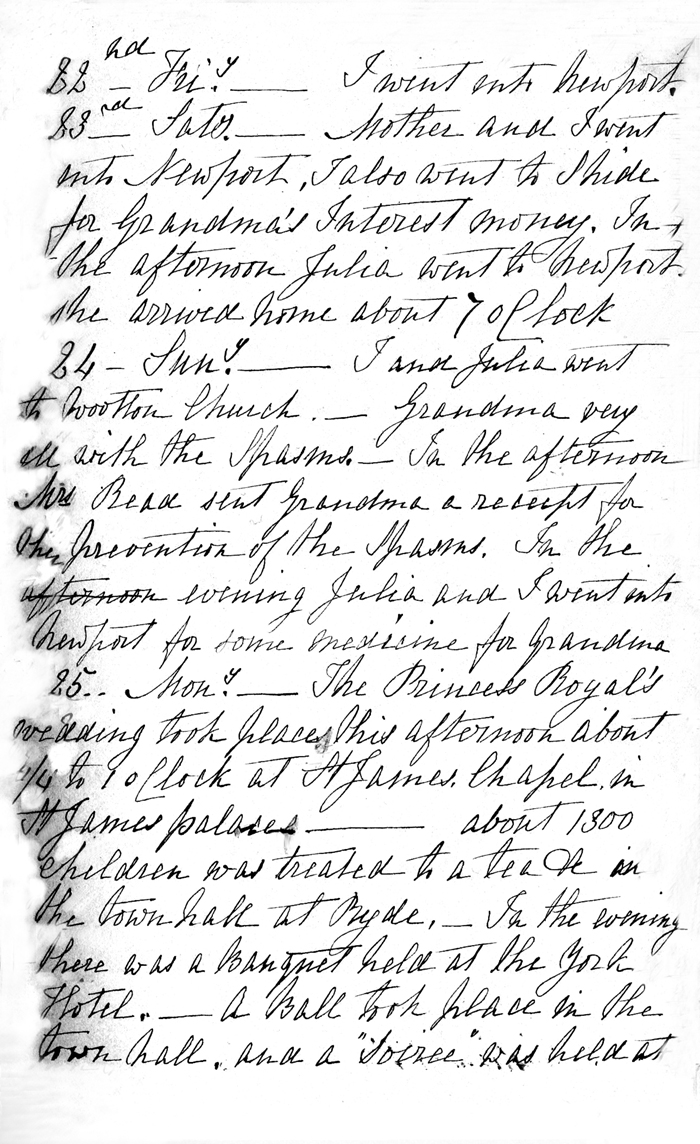 22nd – Fri.y —— I went into Newport.
23rd – Satr. —— Mother and I went
into Newport, I also went to Shide
for Grandma's Interest money. In
the afternoon Julia went to Newport.
she arrived home about 7 oClock
24 – Sun.y —— I and Julia went
to Wootton Church. — Grandma very
ill with the Spasms. — In the afternoon
Mrs Read sent Grandma a receipt for
the prevention of the Spasms. In the
afternoon evening Julia and I went into
Newport for some medicine for Grandma
25.. Mon.y — The Princess Royal's
wedding took place, this afternoon about
1/4 to 1 oClock at St James. Chapel. in
St James palace —— about 1300
children was treated to a tea &c in
the town hall at Ryde. — In the evening
there was a Banquet held at the York
Hotel. — A Ball took place in the
town hall. and a "Soiree" was held at